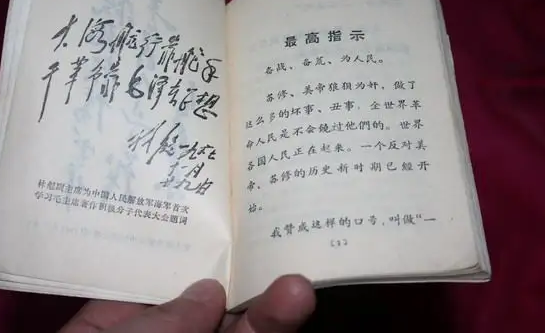 大海航行靠舵手
干革命靠毛泽东思想
林彪 一九六七
十一月
廿九日
林彪副主席为中国人民解放军海军首次
学习毛主席著作积极分子代表大会题词
最高指示
备战、备荒、为人民。
苏修、美帝狼狈为奸，做了
这么多的坏事、丑事，全世界革
命人民是不会饶过他们的。世界
各国人民正在起来。一个反对美
帝、苏修的历史新时期已经开
始。
我赞成这样的口号，叫做“一